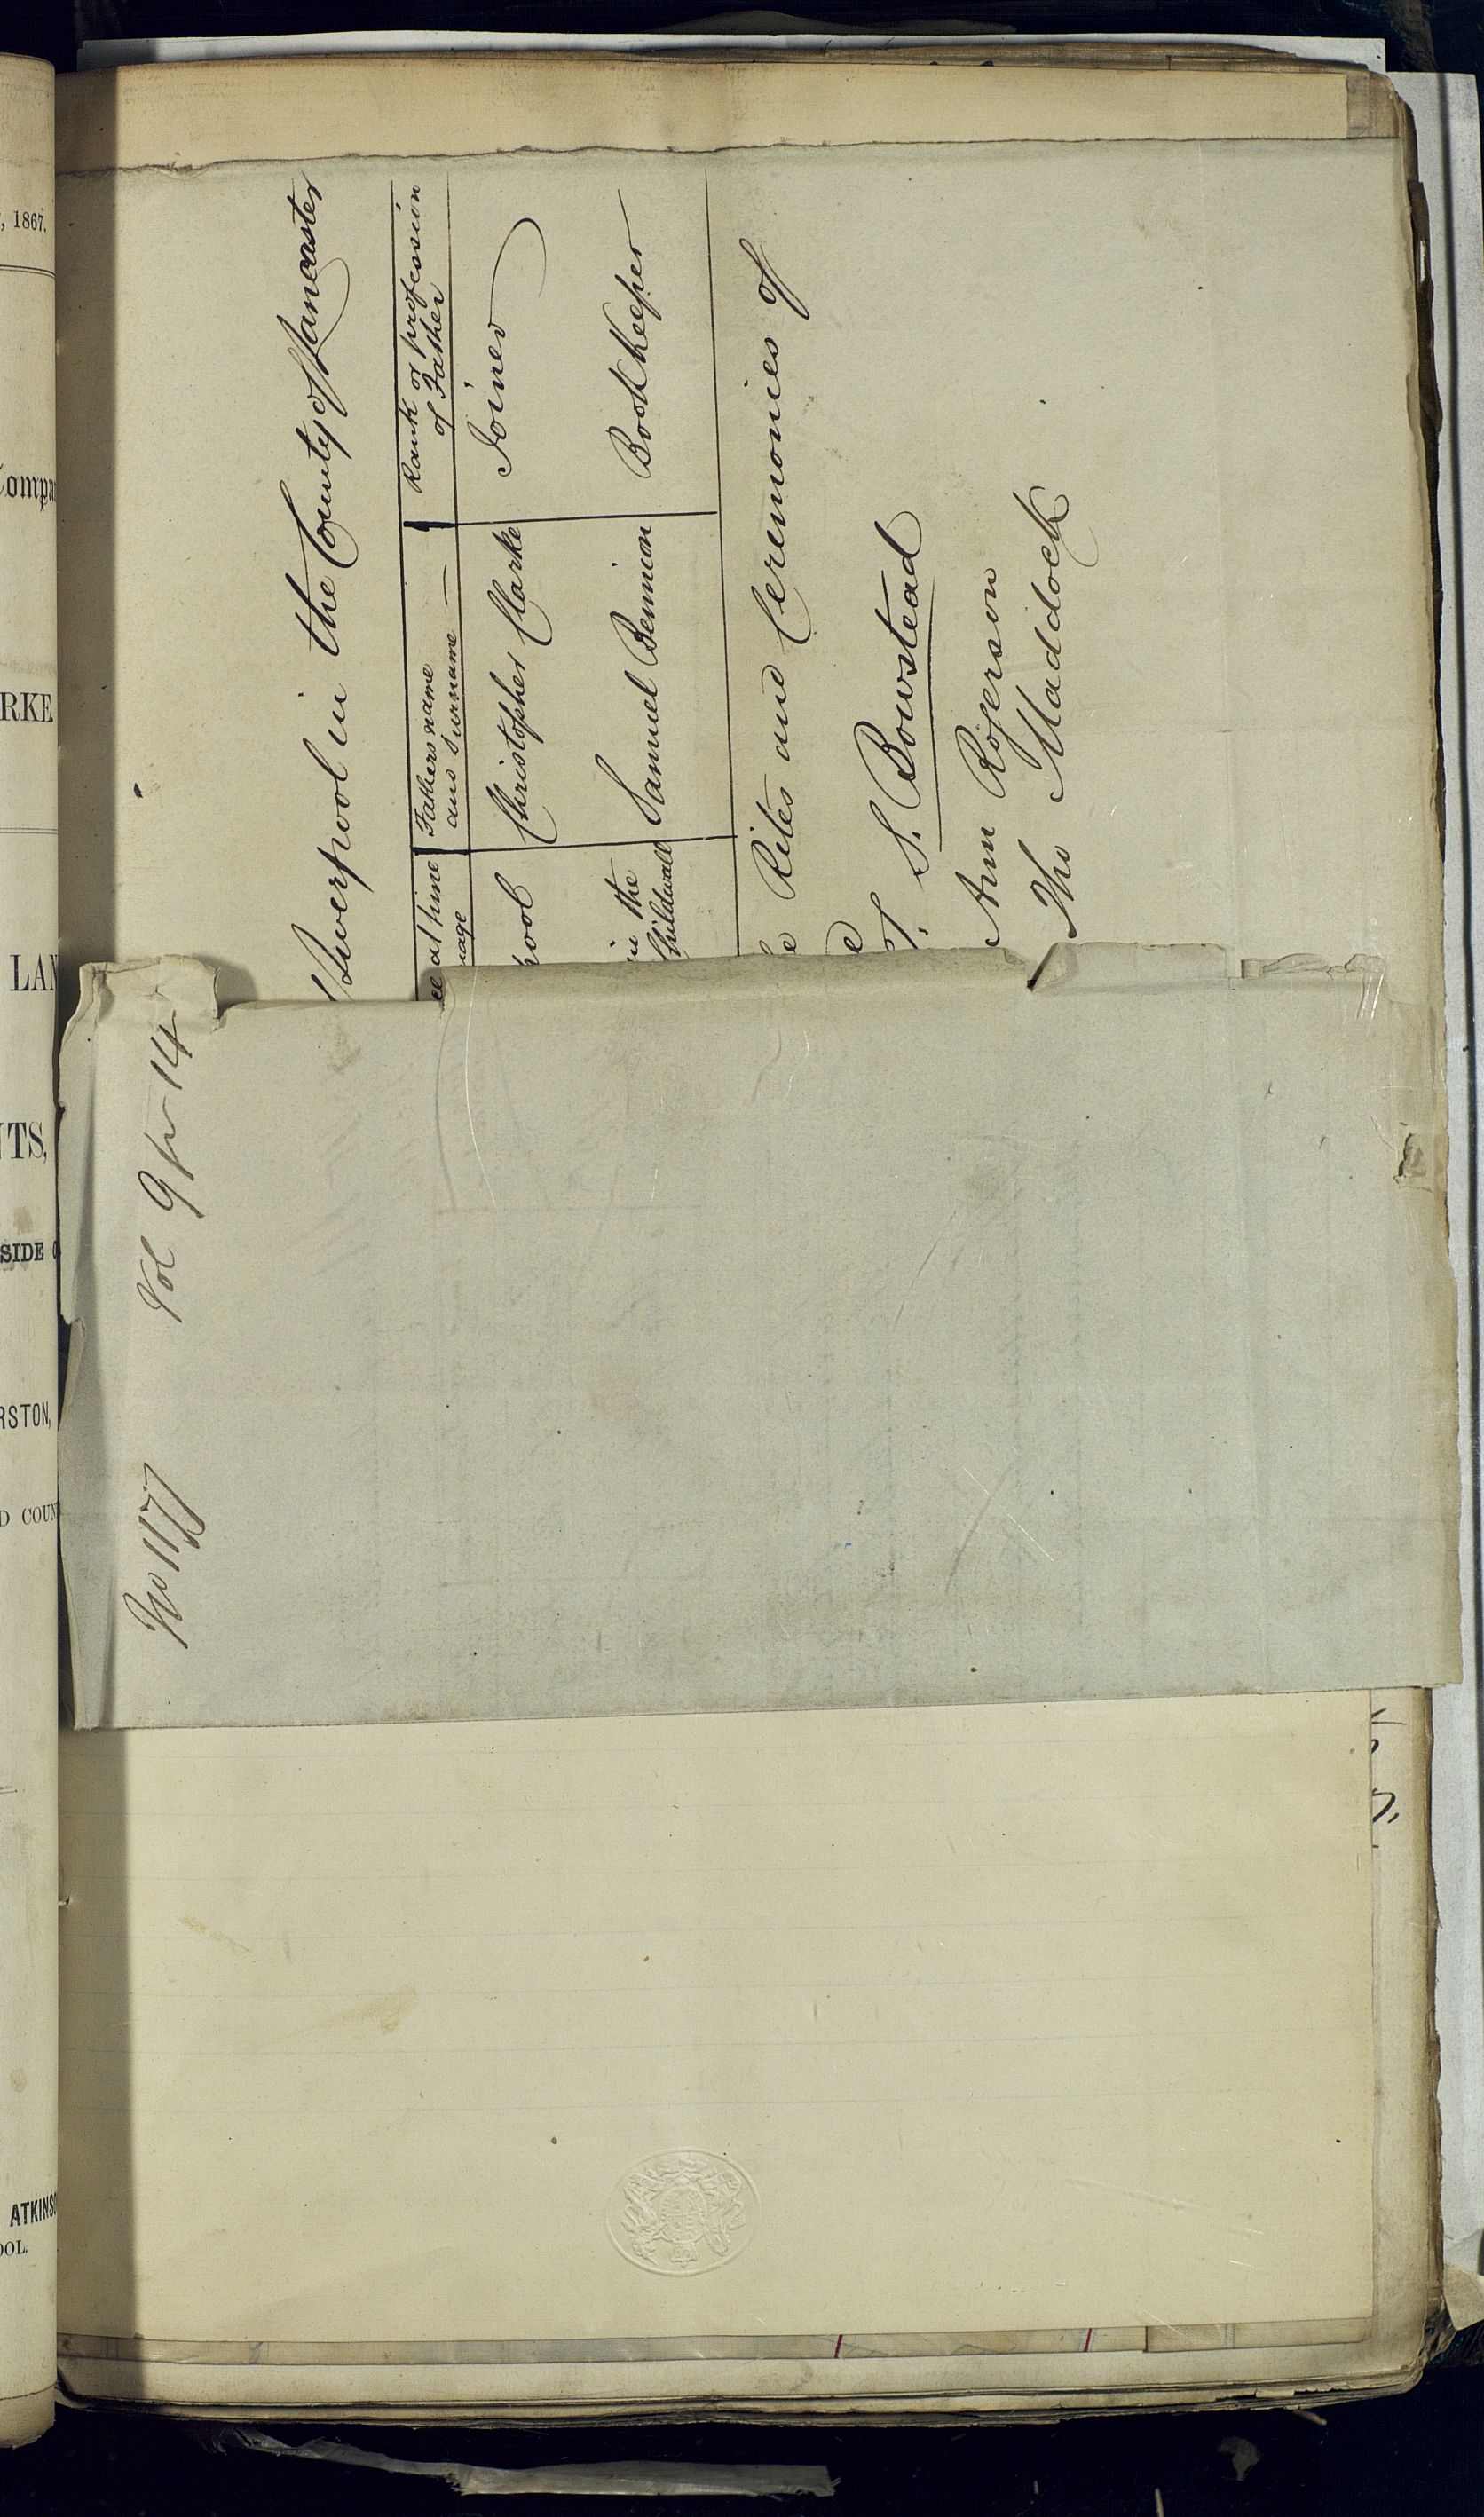 , 1867.
Compa
RKE.
LAN
NTS,
SIDE O
RSTON,
D COUN
ATKINSO
OOL.
No 1177 Vol 9 pr 14
Liverpool in the County of Lancaster
ce at time
Fathers name
Rank or profession
uage
and Surname —
of Father
pool
Christopher Clarke
Joiner
in the
Samuel Bennion
Book Keeper
Childwall
e Rites and Ceremonies of
e
T. S. Bowstead
Ann Rogerson
Tho Maddock